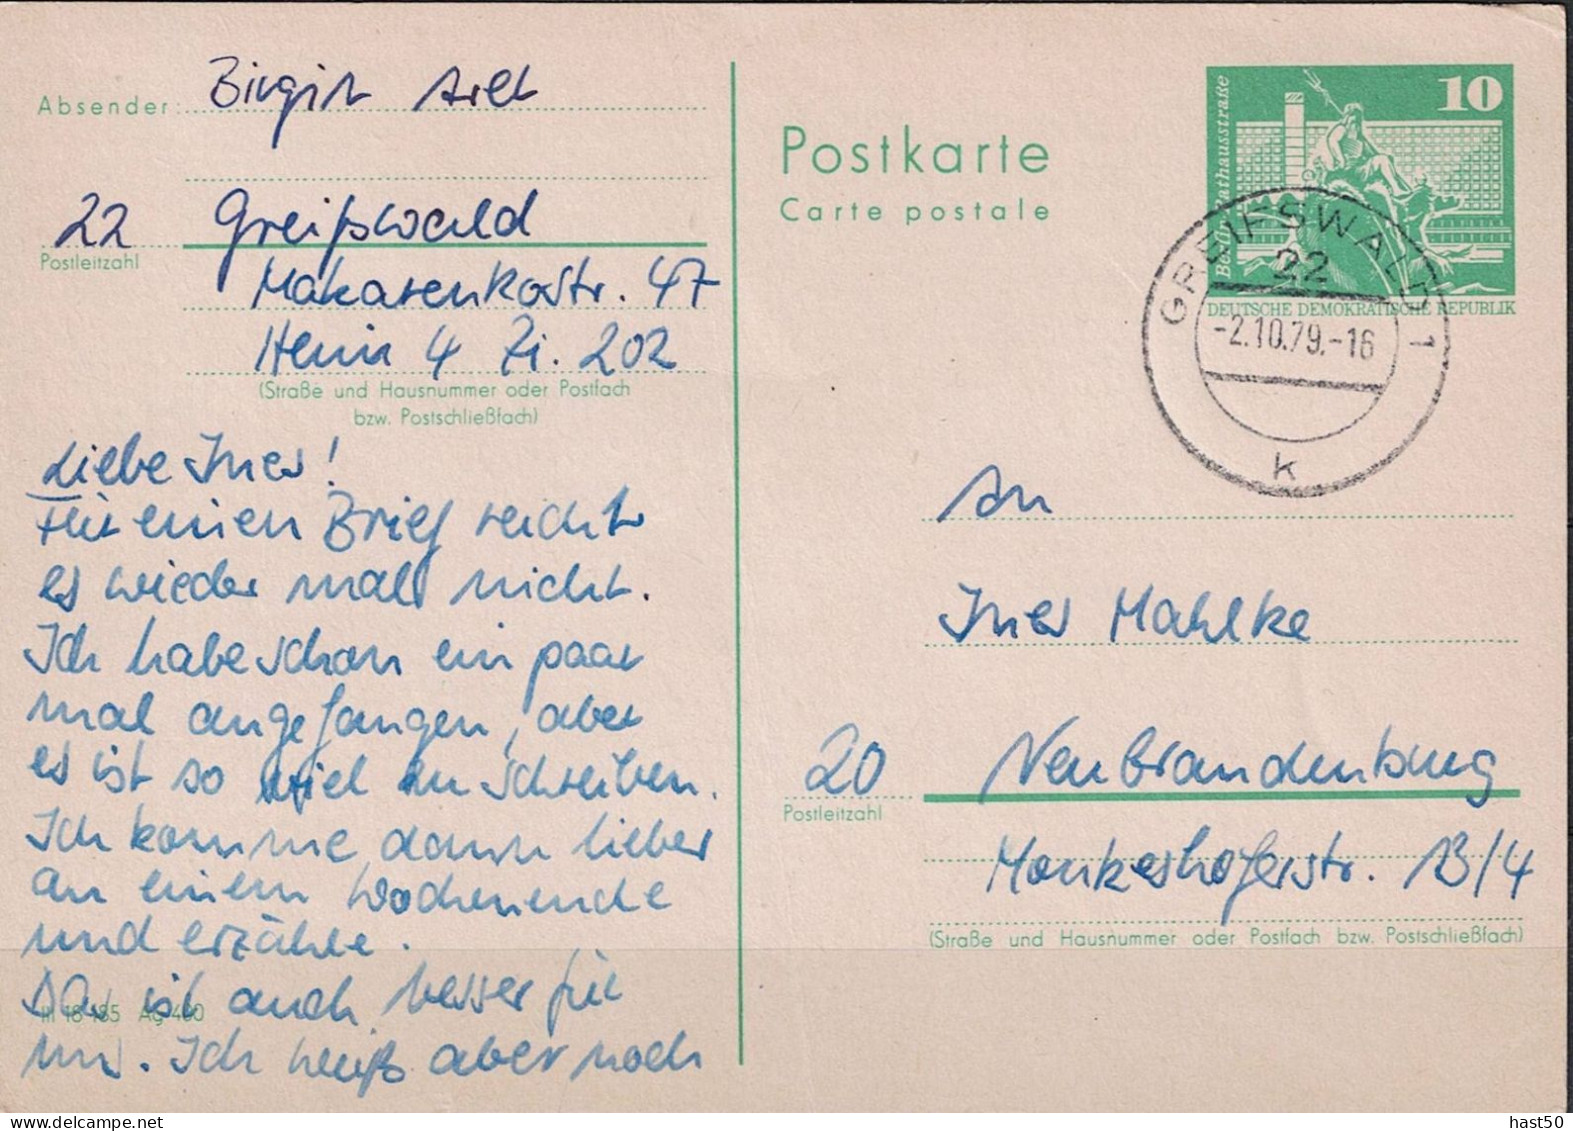 Absender: Birgit Arlt
22 Greifswald
Postleitzahl
Makarenkostr. 47
Heim 4 Zi. 202
(Straße und Hausnummer oder Postfach
bzw. Postschließfach)
Liebe Ines!
Für einen Brief reicht
es wieder mal nicht.
Ich habe schon ein paar
mal angefangen, aber
es ist so viel zu schreiben.
Ich komme dann lieber
an einem Wochenende
und erzähle.
Das ist auch besser für
uns. Ich weiß aber noch
III 18 185 Ag 400
Postkarte
Carte postale
10
Berlin, Rathausstraße
DEUTSCHE DEMOKRATISCHE REPUBLIK
GREIFSWALD 1
22
-2.10.79.-16
k
An
Ines Mahlke
20 Neubrandenburg
Postleitzahl
Monkeshoferstr. 13/4
(Straße und Hausnummer oder Postfach bzw. Postschließfach)
hast50